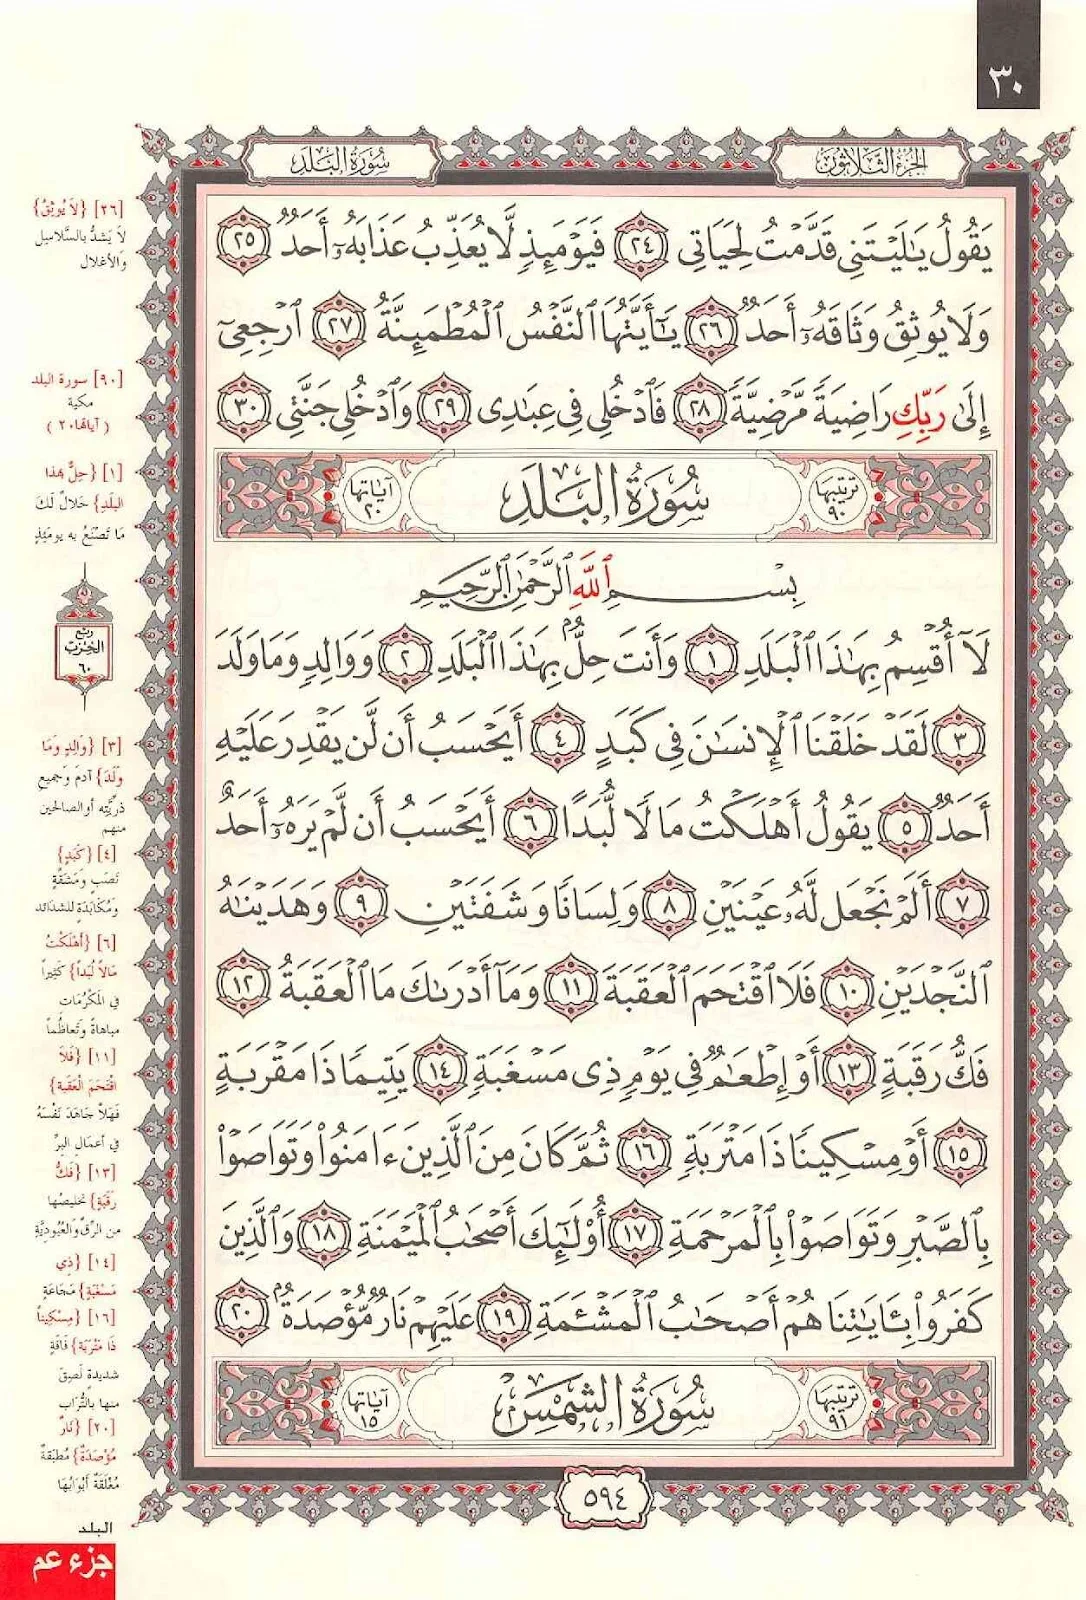 ٣٠
الجزء الثلاثون
سورة البلد
يَقُولُ يَٰلَيْتَنِي قَدَّمْتُ لِحَيَاتِي ٢٤ فَيَوْمَئِذٍ لَّا يُعَذِّبُ عَذَابَهُۥٓ أَحَدٌ ٢٥
وَلَا يُوثِقُ وَثَاقَهُۥٓ أَحَدٌ ٢٦ يَٰٓأَيَّتُهَا ٱلنَّفْسُ ٱلْمُطْمَئِنَّةُ ٢٧ ٱرْجِعِيٓ
إِلَىٰ رَبِّكِ رَاضِيَةً مَّرْضِيَّةً ٢٨ فَٱدْخُلِي فِي عِبَٰدِي ٢٩ وَٱدْخُلِي جَنَّتِي ٣٠
ترتيبها ٩٠ سُورَةُ البَلَدِ آياتها ٢٠
بِسْمِ ٱللَّهِ ٱلرَّحْمَٰنِ ٱلرَّحِيمِ
لَآ أُقْسِمُ بِهَٰذَا ٱلْبَلَدِ ١ وَأَنتَ حِلٌّۢ بِهَٰذَا ٱلْبَلَدِ ٢ وَوَالِدٍ وَمَا وَلَدَ
٣ لَقَدْ خَلَقْنَا ٱلْإِنسَٰنَ فِي كَبَدٍ ٤ أَيَحْسَبُ أَن لَّن يَقْدِرَ عَلَيْهِ
أَحَدٌ ٥ يَقُولُ أَهْلَكْتُ مَالًا لُّبَدًا ٦ أَيَحْسَبُ أَن لَّمْ يَرَهُۥٓ أَحَدٌ
٧ أَلَمْ نَجْعَل لَّهُۥ عَيْنَيْنِ ٨ وَلِسَانًا وَشَفَتَيْنِ ٩ وَهَدَيْنَٰهُ
ٱلنَّجْدَيْنِ ١٠ فَلَا ٱقْتَحَمَ ٱلْعَقَبَةَ ١١ وَمَآ أَدْرَىٰكَ مَا ٱلْعَقَبَةُ ١٢
فَكُّ رَقَبَةٍ ١٣ أَوْ إِطْعَٰمٌ فِي يَوْمٍ ذِي مَسْغَبَةٍ ١٤ يَتِيمًا ذَا مَقْرَبَةٍ
١٥ أَوْ مِسْكِينًا ذَا مَتْرَبَةٍ ١٦ ثُمَّ كَانَ مِنَ ٱلَّذِينَ ءَامَنُوا۟ وَتَوَاصَوْا۟
بِٱلصَّبْرِ وَتَوَاصَوْا۟ بِٱلْمَرْحَمَةِ ١٧ أُو۟لَٰٓئِكَ أَصْحَٰبُ ٱلْمَيْمَنَةِ ١٨ وَٱلَّذِينَ
كَفَرُوا۟ بِـَٔايَٰتِنَا هُمْ أَصْحَٰبُ ٱلْمَشْـَٔمَةِ ١٩ عَلَيْهِمْ نَارٌ مُّؤْصَدَةٌۢ ٢٠
ترتيبها ٩١ سُورَةُ الشَّمْسِ آياتها ١٥
٥٩٤
[٢٦] {لَا يُوثِقُ}
لَا يَشُدُّ بالسَّلاسِل
والأغلال
[٩٠] سورة البلد
مكية
( آياتها ٢٠ )
[١] {حِلٌّ بهذا
البلدِ} حَلالٌ لَكَ
مَا تَصْنَعُ به يومَئِذٍ
ربع
الحزب
٦٠
[٣] {وَالِدٍ وَمَا
وَلَدَ} آدمَ وجَميعِ
ذرِّيَّتِه أو الصالحين
منهم
[٤] {كَبَدٍ}
نَصَبٍ وَمَشَقَّةٍ
وَمُكَابَدَةٍ للشدائد
[٦] {أَهْلَكْتُ
مَالاً لُبَداً} كَثِيراً
في المَكْرُمَات
مباهاةً وَتَعاظُماً
[١١] {فَلَا
اقْتَحَمَ الْعَقَبَةَ}
فَهَلاَّ جَاهَدَ نَفْسَهُ
في أعمَالِ البِرِّ
[١٣] {فَكُّ
رَقَبَةٍ} تخليصُها
من الرِّقّ وَالعُبُودِيَّةِ
[١٤] {ذِي
مَسْغَبَةٍ} مَجَاعَةٍ
[١٦] {مِسْكِيناً
ذَا مَتْرَبَةٍ} فَاقَةٍ
شديدةٍ لَصِقَ
منها بالتُّرَاب
[٢٠] {نَارٌ
مُؤْصَدَةٌ} مُطبَقةٌ
مُغْلَقَةٌ أَبْوَابُهَا
البلد
جزء عم